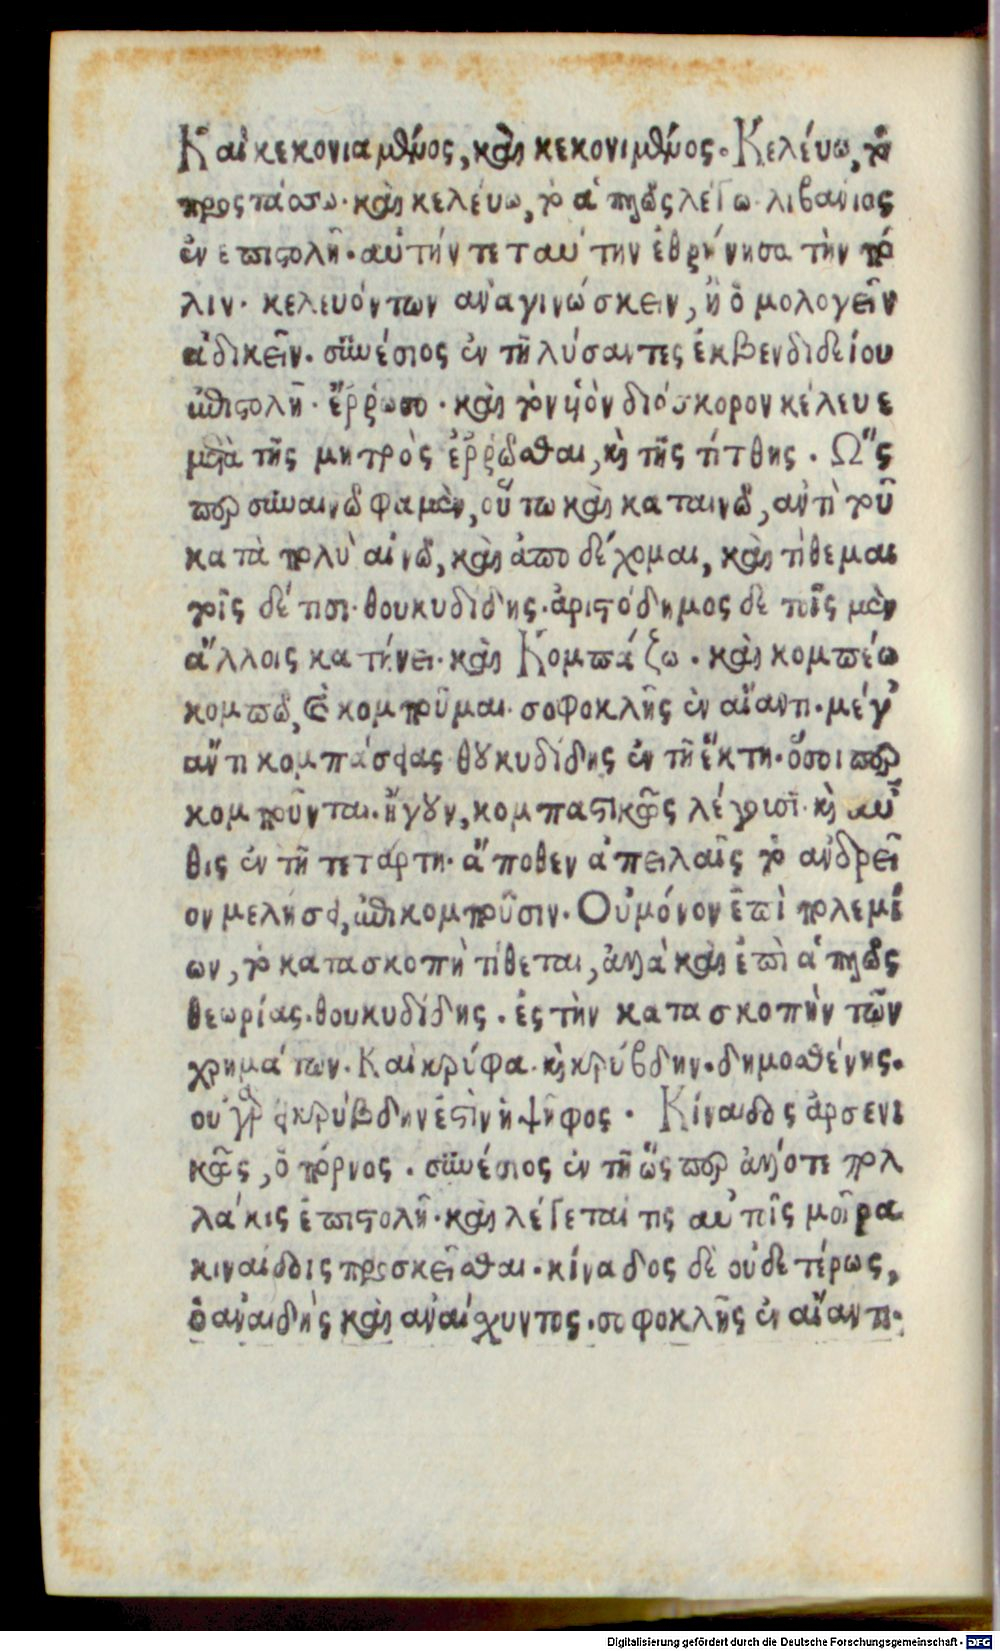 Καὶ κεκονιαμένος, καὶ κεκονιμένος. Κελεύω, τὸ
προστάσσω. καὶ κελεύω, τὸ ἁπλῶς λέγω. λιβάνιος
ἐν ἐπιστολῆ. αὐτήν τε ταύτην ἐθρήνησα τὴν πό
λιν. κελευόντων ἀναγινώσκειν, ἢ ὁμολογεῖν
ἀδικεῖν. συνέσιος ἐν τῆ λύσαντες ἐκ βενδιδείου
ἐπιστολῆ. ἔρρωσο. καὶ τὸν ὑὸν διόσκορον κέλευε
μετὰ τῆς μητρὸς ἐρρῶσθαι, καὶ τῆς τίτθης. Ὥς
περ συναινῶ φαμὲν, οὕτω καὶ καταινῶ, ἀντὶ τοῦ
κατὰ πολὺ αἰνῶ, καὶ ἀποδέχομαι, καὶ τίθεμαι
τοῖς δέ τισι. θουκυδίδης. ἀριστόδημος δὲ τοῖς μὲν
ἄλλοις κατήνει. καὶ Κομπάζω. καὶ κομπέω
κομπῶ, καὶ κομποῦμαι. σοφοκλῆς ἐν αἴαντι. μέγ'
ἄν τι κομπάσειας θουκυδίδης ἐν τῆ ἕκτη. ὅσοι περ
κομποῦνται. ἤγουν, κομπαστικῶς λέγουσι. καὶ αὖ
θις ἐν τῆ τετάρτη. ἄποθεν ἀπειλαῖς τὸ ἀνδρεῖ
ον μελήσει, ἐπικομποῦσιν. Οὐ μόνον ἐπὶ πολεμί
ων, τὸ κατασκοπὴ τίθεται, ἀλλὰ καὶ ἐπὶ ἁπλῶς
θεωρίας. θουκυδίδης. ἐς τὴν κατασκοπὴν τῶν
χρημάτων. Καὶ κρύφα. καὶ κρύβδην. δημοσθένης.
οὐ γὰρ εἰ κρύβδην ἐστὶν ἡ ψῆφος. Κίναιδος ἀρσενι
κῶς, ὁ πόρνος. συνέσιος ἐν τῆ ὥσπερ ἄλλοτε πολ
λάκις ἐπιστολῆ. καὶ λέγεταί τις αὐτοῖς μοῖρα
κιναίδοις προσκεῖσθαι. κίναδος δὲ οὐδετέρως,
ὁ ἀναιδὴς καὶ ἀναίχυντος. σοφοκλῆς ἐν αἴαντι.
Digitalisierung gefördert durch die Deutsche Forschungsgemeinschaft - DFG